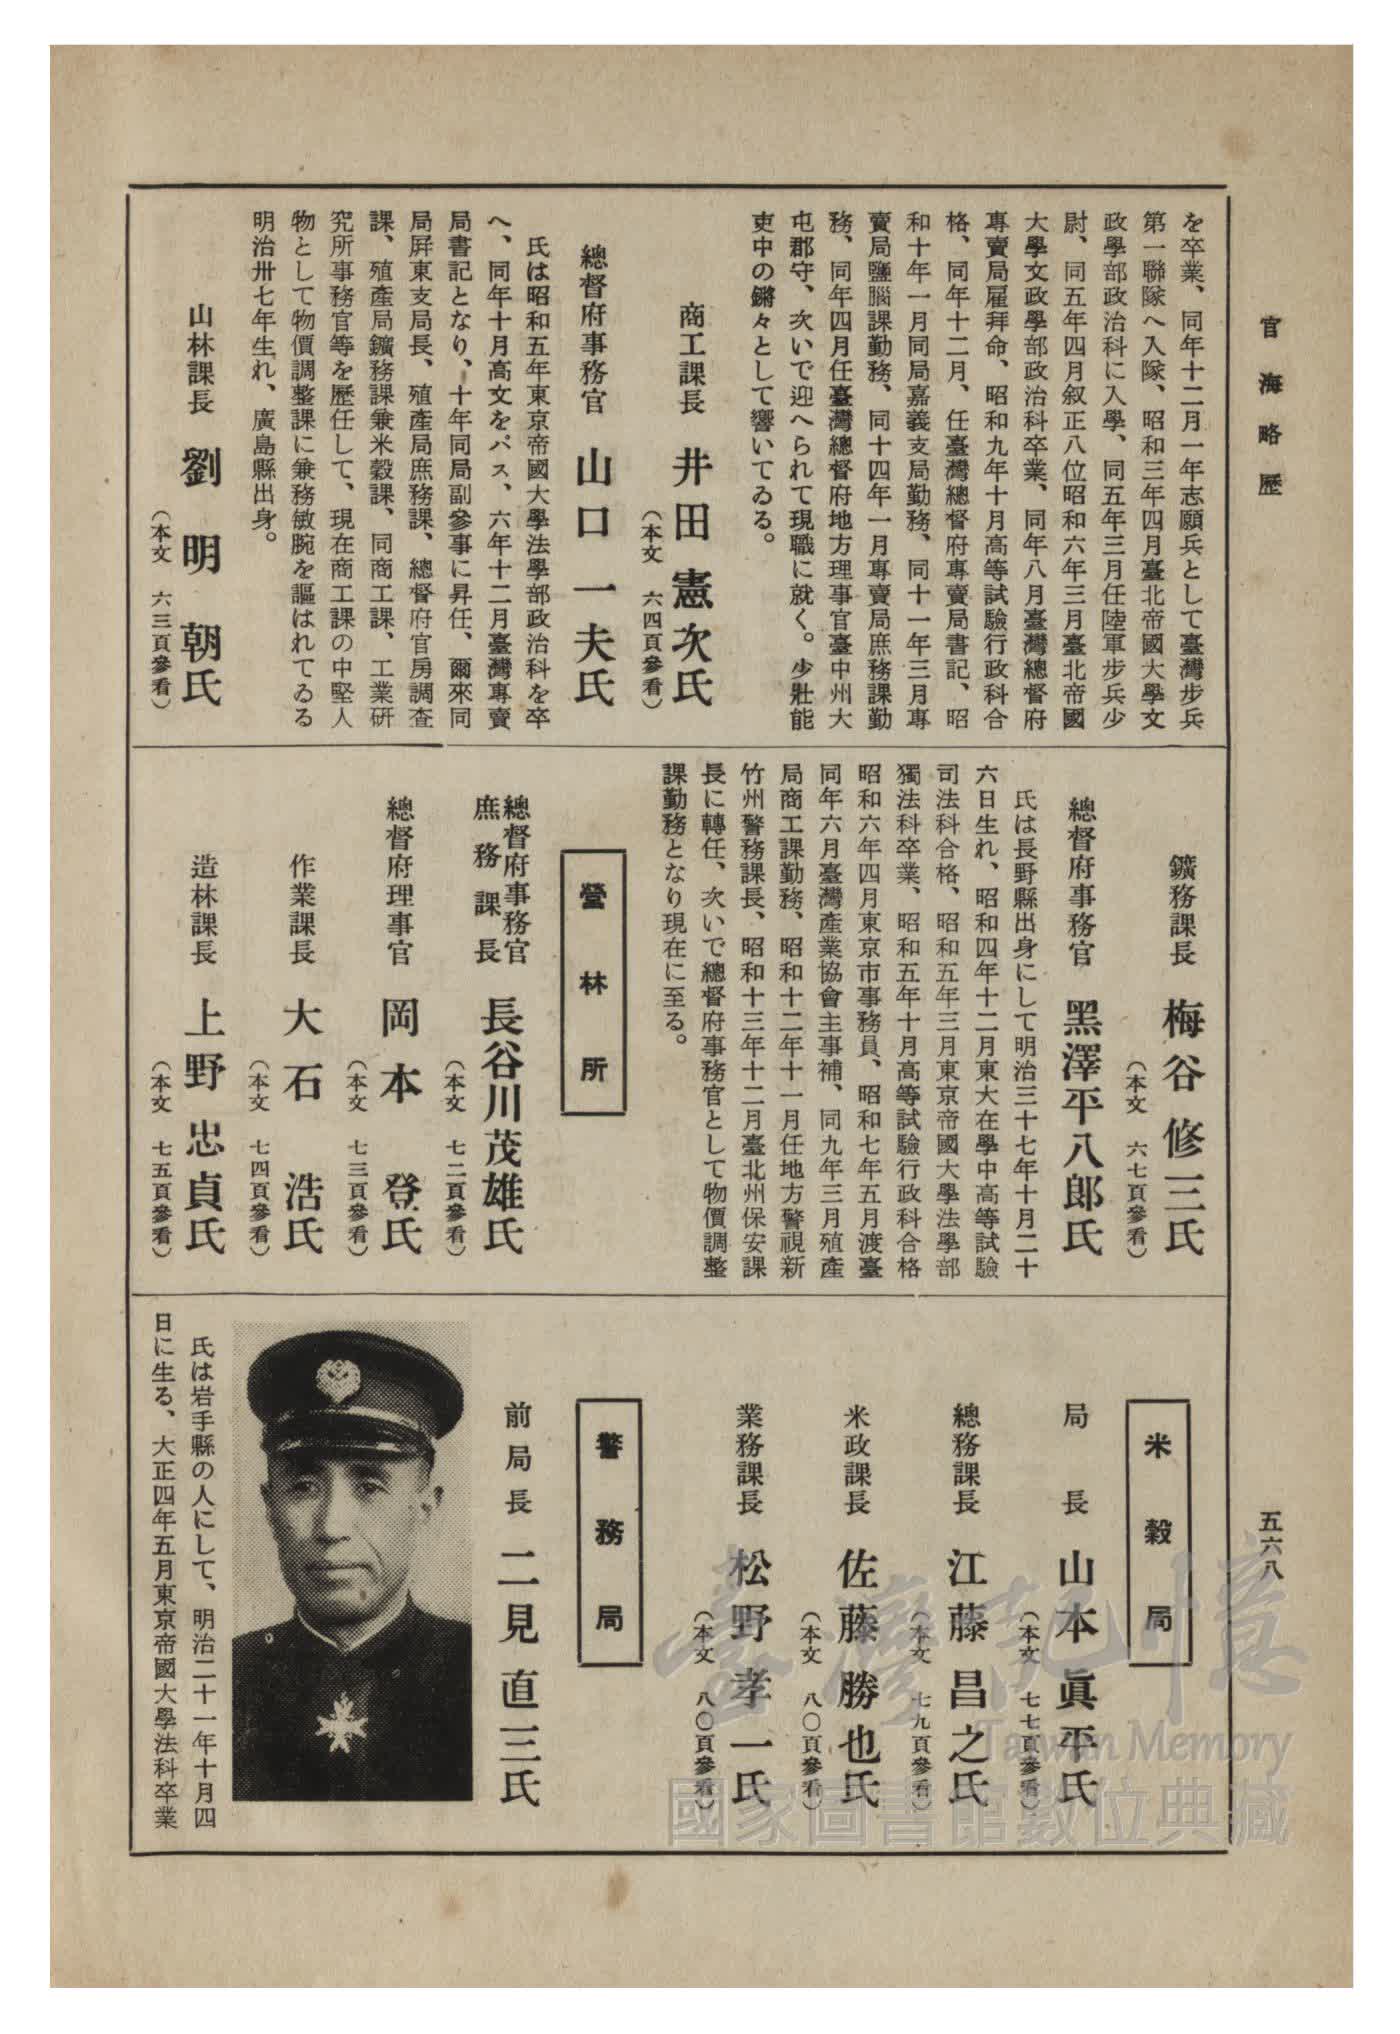 官海略歷
五六八
を卒業、同年十二月一年志願兵として臺灣步兵
第一聯隊へ入隊、昭和三年四月臺北帝國大學文
政學部政治科に入學、同五年三月任陸軍步兵少
尉、同五年四月叙正八位昭和六年三月臺北帝國
大學文政學部政治科卒業、同年八月臺灣總督府
專賣局雇拜命、昭和九年十月高等試驗行政科合
格、同年十二月、任臺灣總督府專賣局書記、昭
和十年一月同局嘉義支局勤務、同十一年三月專
賣局鹽腦課勤務、同十四年一月專賣局庶務課勤
務、同年四月任臺灣總督府地方理事官臺中州大
屯郡守、次いで迎へられて現職に就く。少壯能
吏中の鏘々として響いてゐる。
商工課長 井田憲次氏
(本文 六四頁參看)
總督府事務官 山口一夫氏
氏は昭和五年東京帝國大學法學部政治科を卒
へ、同年十月高文をパス、六年十二月臺灣專賣
局書記となり、十年同局副參事に昇任、爾來同
局屛東支局長、殖產局庶務課、總督府官房調査
課、殖產局鑛務課兼米穀課、同商工課、工業研
究所事務官等を歷任して、現在商工課の中堅人
物として物價調整課に兼務敏腕を謳はれてゐる
明治卅七年生れ、廣島縣出身。
山林課長 劉明朝氏
(本文 六三頁參看)
鑛務課長 梅谷修三氏
(本文 六七頁參看)
總督府事務官 黑澤平八郎氏
氏は長野縣出身にして明治三十七年十月二十
六日生れ、昭和四年十二月東大在學中高等試驗
司法科合格、昭和五年三月東京帝國大學法學部
獨法科卒業、昭和五年十月高等試驗行政科合格
昭和六年四月東京市事務員、昭和七年五月渡臺
同年六月臺灣產業協會主事補、同九年三月殖產
局商工課勤務、昭和十二年十一月任地方警視新
竹州警務課長、昭和十三年十二月臺北州保安課
長に轉任、次いで總督府事務官として物價調整
課勤務となり現在に至る。
營林所
總督府事務官
庶務課長 長谷川茂雄氏
(本文 七二頁參看)
總督府理事官 岡本登氏
(本文 七三頁參看)
作業課長 大石浩氏
(本文 七四頁參看)
造林課長 上野忠貞氏
(本文 七五頁參看)
米穀局
局長 山本眞平氏
(本文 七七頁參看)
總務課長 江藤昌之氏
(本文 七九頁參看)
米政課長 佐藤勝也氏
(本文 八〇頁參看)
業務課長 松野孝一氏
(本文 八〇頁參看)
警務局
前局長 二見直三氏
氏は岩手縣の人にして、明治二十一年十月四
日に生る、大正四年五月東京帝國大學法科卒業
臺灣記憶
Taiwan Memory
國家圖書館數位典藏